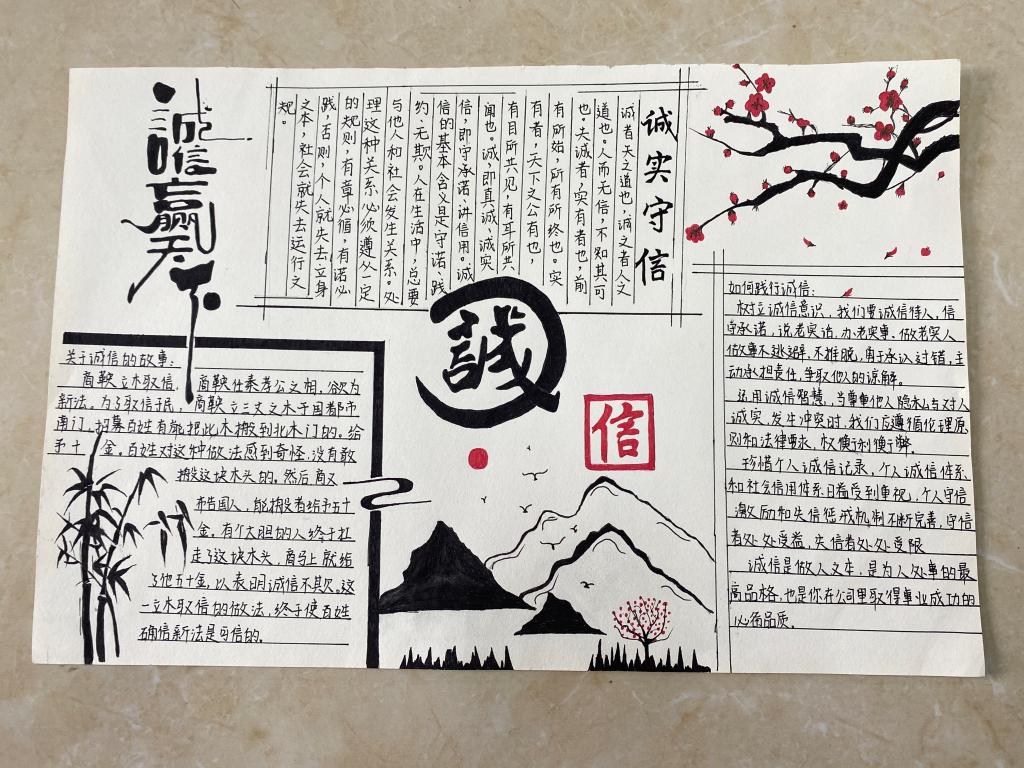 誠信赢天下
诚实守信
诚者天之道也,诚之者人之
道也。人而无信,不知其可
也。夫诚者,实有者也,前
有所始,所有所终也。实
有者,天下之公有也,
有目所共见,有耳所共
闻也。诚,即真诚、诚实
信,即守承诺、讲信用。诚
信的基本含义是守诺、践
约、无欺。人在生活中,总要
与他人和社会发生关系。处
理这种关系必须遵从一定
的规则,有章必循,有诺必
践,否则,个人就失去立身
之本,社会就失去运行之
规。
誠
信
关于诚信的故事:
商鞅立木取信, 商鞅任秦孝公之相,欲为
新法。为了取信于民,商鞅立三丈之木于国都市
南门,招募百姓有能把此木搬到北木门的。给
予十金。百姓对这种做法感到奇怪,没有敢
搬这块木头的。然后商又
布告国人,能搬者给予五十
金。有个大胆的人终于扛
走了这块木头,商马上就给
了他五十金,以表明诚信不其欠。这
一立木取信的做法,终于使百姓
确信新法是可信的.
如何践行诚信:
树立诚信意识,我们要诚信待人,信
守承诺,说老实话,办老实事、做老实人
做事不逃避,不推脱,勇于承认过错,主
动承担责任,争取他人的谅解。
运用诚信智慧,当尊重他人隐私与对人
诚实,发生冲突时,我们应遵循伦理原
则和法律要求,权衡利弊
珍惜个人诚信记录,个人诚信体系
和社会信用体系日益受到重视,个人守信
激励和失信惩戒机制不断完善,守信
者处处受益,失信者处处受限
诚信是做人之本,是为人处事的最
高品格,也是你在公司里取得事业成功的
必备品质.